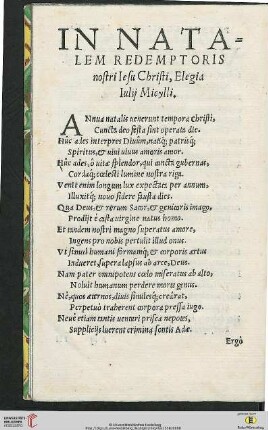 IN NATA-
LEM REDEMPTORIS
nostri Iesu Christi, Elegia
Iulij Micylli.
ANnua natalis venerunt tempora Christi,
Cuncta deo festa sint operata die.
Huc ades interpres Diuûm, natiq; patrisq;
Spiritus, & viui viuus amoris amor.
Huc ades, ô vitæ splendor, qui cuncta gubernas,
Cordaq; cœlesti lumine nostra riga.
Venit enim longum lux expectata per annum,
Illuxitq; nouo sidere fausta dies.
Qua Deus, & rerum Sator, & genitoris imago,
Prodijt è casta virgine natus homo.
Et tandem nostri magno superatus amore,
Iugens pro nobis pertulit illud onus.
Vt simul humani formamq; & corporis artus
Indueret, supera lapsus ab arce, Deus.
Nam pater omnipotens cœlo miseratus ab alto,
Noluit humanum perdere mores genus.
Ne quos æternos, diuis similesq; crearat,
Perpetuò traherent corpora pressa iugo.
Neue etiam tantis venturi prisca nepotes,
Supplicijs luerent crimina sontis Adæ.
Ergò